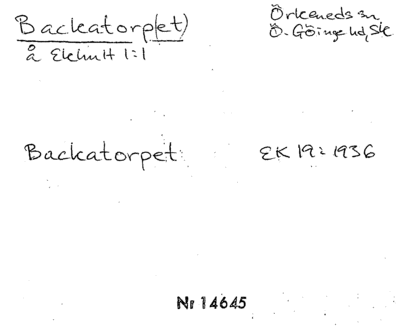 Backatorp(et)
Örkeneds sn
Ö. Göinge hd, Sk
å Ekholt 1:1
Backatorpet EK 19: 1936
Nr 14645